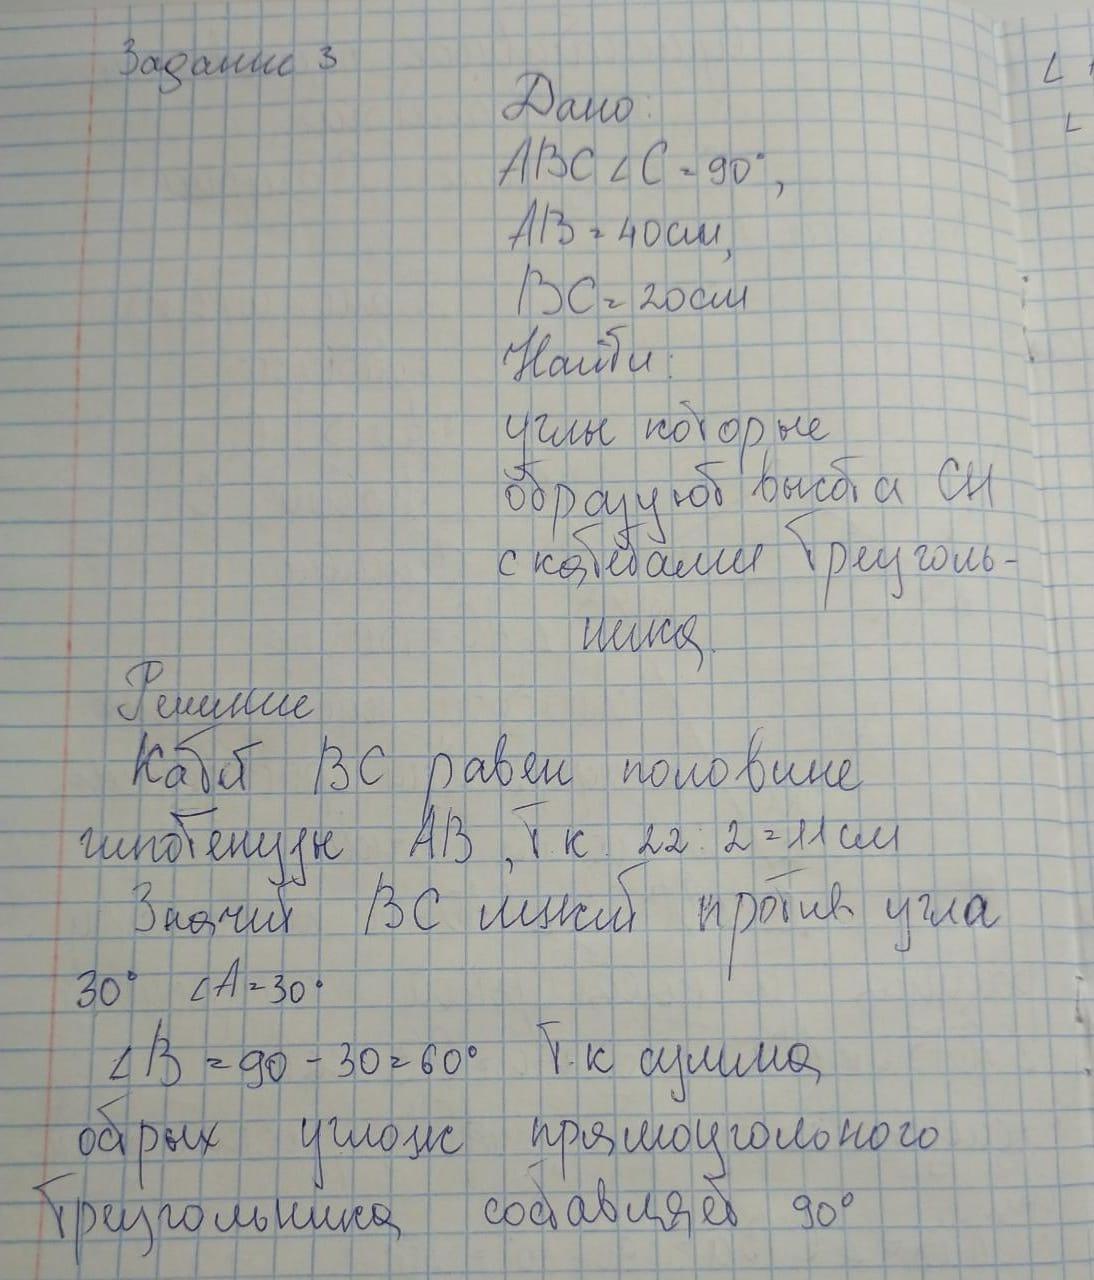 Задание 3
Дано:
ABC ∠C = 90°,
AB = 40см,
BC = 20см
Найти:
углы которые
образуют высота CH
с катетами треуголь-
ника.
Решение
Катет BC равен половине
гипотенузы AB, т.к. 22:2=11см
Значит BC лежит против угла
30° ∠A=30°
∠B = 90 - 30 = 60° т.к сумма
острых углов прямоугольного
треугольника составляет 90°
∠
∠